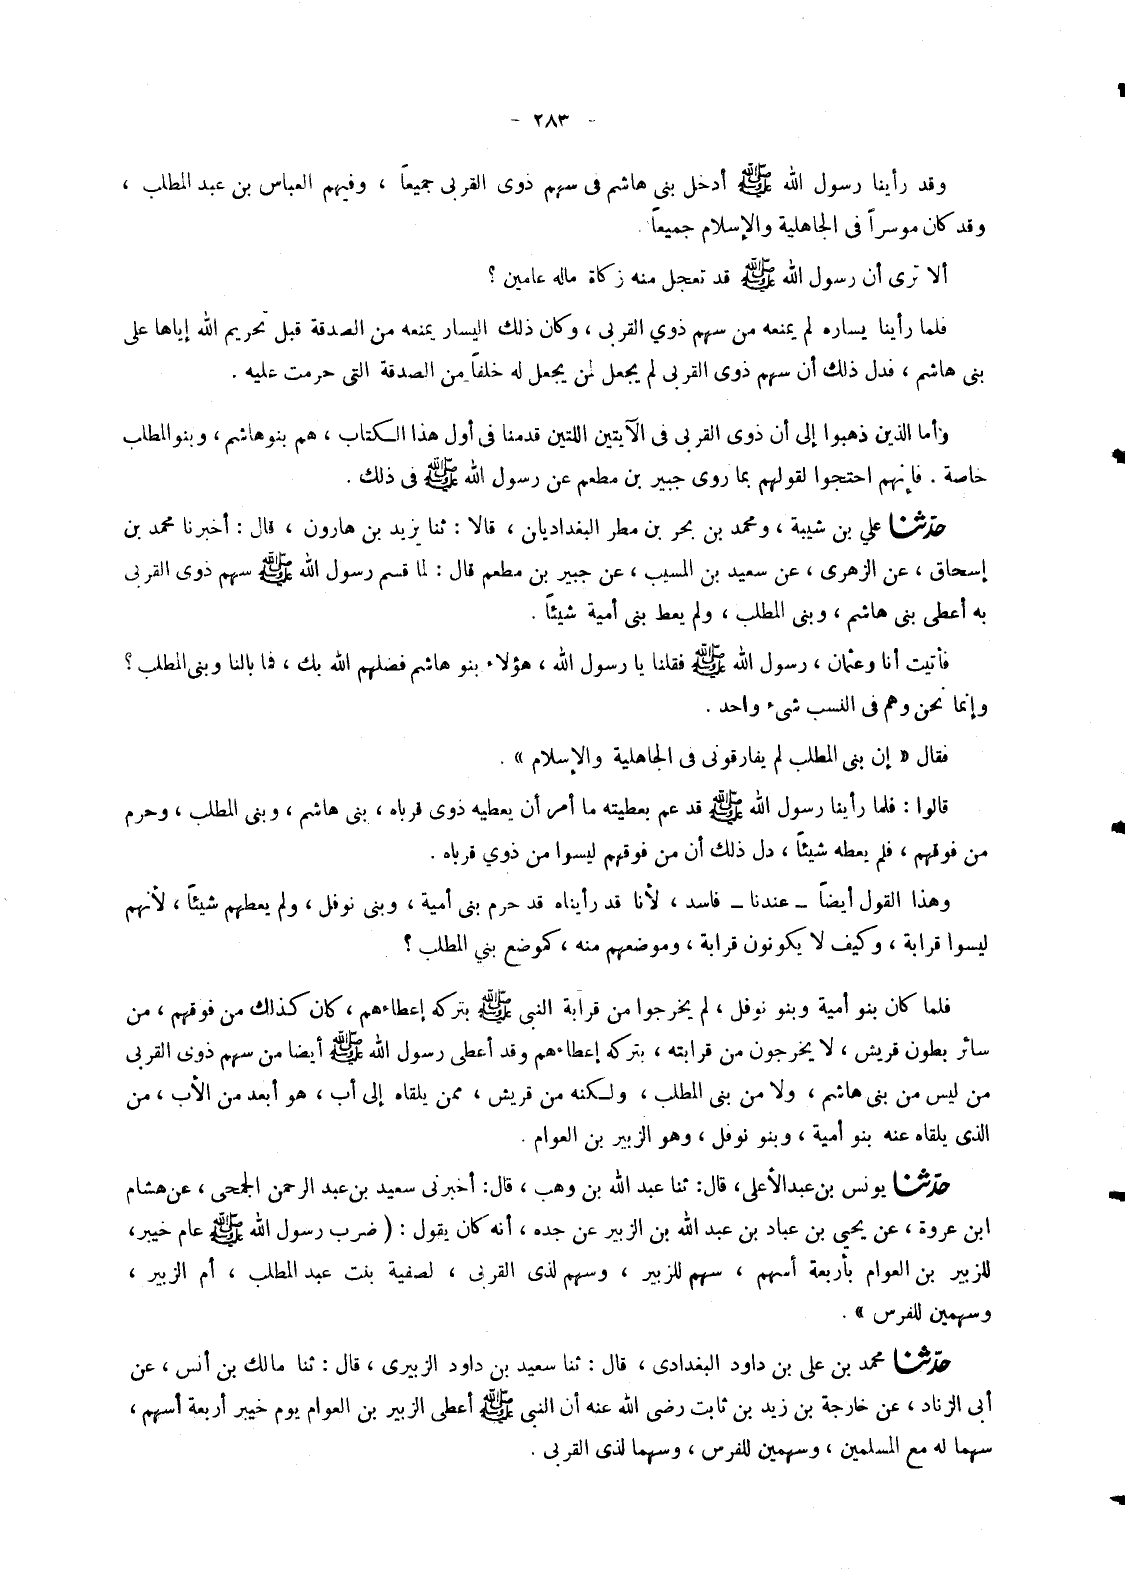 - ٢٨٣ -
وقد رأينا رسول الله ﷺ أدخل بنى هاشم فى سهم ذوى القربى جميعاً ، وفيهم العباس بن عبد المطلب ،
وقد كان موسراً فى الجاهلية والإسلام جميعاً .
ألا ترى أن رسول الله ﷺ قد تعجل منه زكاة ماله عامين ؟
فلما رأينا يساره لم يمنعه من سهم ذوي القربى ، وكان ذلك اليسار يمنعه من الصدقة قبل تحريم الله إياها على
بنى هاشم ، فدل ذلك أن سهم ذوى القربى لم يجعل لمن يجعل له خلفاً من الصدقة التى حرمت عليه .
وأما الذين ذهبوا إلى أن ذوى القربى فى الآيتين اللتين قدمنا فى أول هذا الكتاب ، هم بنو هاشم ، وبنو المطلب
خاصة . فإنهم احتجوا لقولهم بما روى جبير بن مطعم عن رسول الله ﷺ فى ذلك .
حدّثنا علي بن شيبة ، ومحمد بن بحر بن مطر البغداديان ، قالا : ثنا يزيد بن هارون ، قال : أخبرنا محمد بن
إسحاق ، عن الزهرى ، عن سعيد بن المسيب ، عن جبير بن مطعم قال : لما قسم رسول الله ﷺ سهم ذوى القربى
به أعطى بنى هاشم ، وبنى المطلب ، ولم يعط بنى أمية شيئاً .
فأتيت أنا وعثمان ، رسول الله ﷺ فقلنا يا رسول الله ، هؤلاء بنو هاشم فضلهم الله بك ، فما بالنا وبنى المطلب ؟
وإنما نحن وهم فى النسب شىء واحد .
فقال « إن بنى المطلب لم يفارقونى فى الجاهلية والإسلام » .
قالوا : فلما رأينا رسول الله ﷺ قد عم بعطيته ما أمر أن يعطيه ذوى قرباه ، بنى هاشم ، وبنى المطلب ، وحرم
من فوقهم ، فلم يعطه شيئاً ، دل ذلك أن من فوقهم ليسوا من ذوي قرباه .
وهذا القول أيضاً – عندنا – فاسد ، لأنا قد رأيناه قد حرم بنى أمية ، وبنى نوفل ، ولم يعطهم شيئاً ، لأنهم
ليسوا قرابة ، وكيف لا يكونون قرابة ، وموضعهم منه ، كموضع بني المطلب ؟
فلما كان بنو أمية وبنو نوفل ، لم يخرجوا من قرابة النبى ﷺ بتركه إعطاءهم ، كان كذلك من فوقهم ، من
سائر بطون قريش ، لا يخرجون من قرابته ، بتركه إعطاءهم وقد أعطى رسول الله ﷺ أيضا من سهم ذوى القربى
من ليس من بنى هاشم ، ولا من بنى المطلب ، ولكنه من قريش ، ممن يلقاه إلى أب ، هو أبعد من الأب ، من
الذى يلقاه عنه بنو أمية ، وبنو نوفل ، وهو الزبير بن العوام .
حدّثنا يونس بن عبد الأعلى ، قال: ثنا عبد الله بن وهب ، قال: أخبرنى سعيد بن عبد الرحمن الجمحى ، عن هشام
ابن عروة ، عن يحيي بن عباد بن عبد الله بن الزبير عن جده ، أنه كان يقول : ( ضرب رسول الله ﷺ عام خيبر،
للزبير بن العوام بأربعة أسهم ، سهم للزبير ، وسهم لذى القربى ، لصفية بنت عبد المطلب ، أم الزبير ،
وسهمين للفرس » .
حدّثنا محمد بن على بن داود البغدادى ، قال : ثنا سعيد بن داود الزبيرى ، قال : ثنا مالك بن أنس ، عن
أبى الزناد ، عن خارجة بن زيد بن ثابت رضى الله عنه أن النبى ﷺ أعطى الزبير بن العوام يوم خيبر أربعة أسهم ،
سهما له مع المسلمين ، وسهمين للفرس ، وسهما لذى القربى .